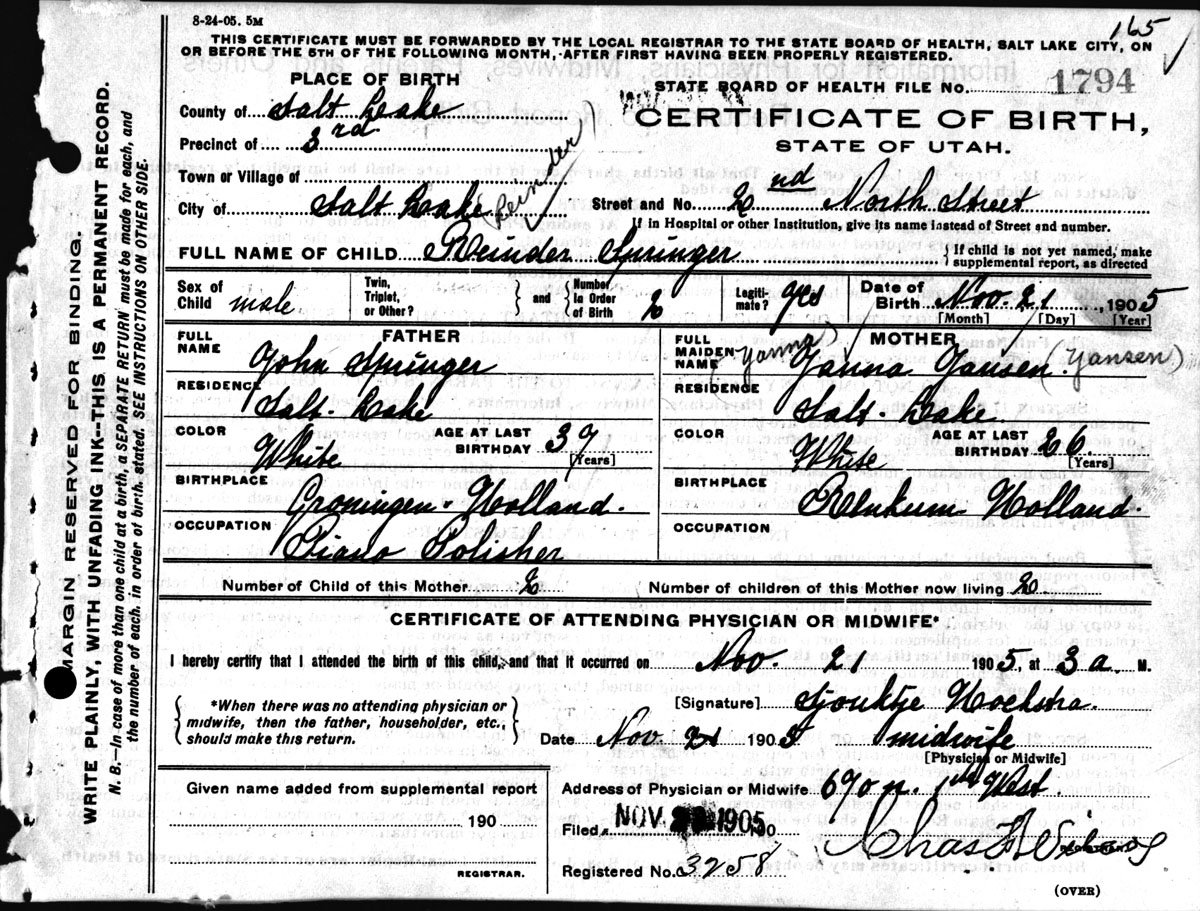 8-24-05. 5M
165
THIS CERTIFICATE MUST BE FORWARDED BY THE LOCAL REGISTRAR TO THE STATE BOARD OF HEALTH, SALT LAKE CITY, ON
OR BEFORE THE 5TH OF THE FOLLOWING MONTH, AFTER FIRST HAVING BEEN PROPERLY REGISTERED.
MARGIN RESERVED FOR BINDING.
WRITE PLAINLY, WITH UNFADING INK--THIS IS A PERMANENT RECORD.
N. B.--In case of more than one child at a birth, a SEPARATE RETURN must be made for each, and
the number of each, in order of birth, stated. SEE INSTRUCTIONS ON OTHER SIDE.
PLACE OF BIRTH
STATE BOARD OF HEALTH FILE NO. 1794
County of Salt Lake
CERTIFICATE OF BIRTH,
Precinct of 3rd
STATE OF UTAH.
Town or Village of
City of Salt Lake
(Reinder)
Street and No. 2nd North Street
If in Hospital or other Institution, give its name instead of Street and number.
FULL NAME OF CHILD Reinder Springer
If child is not yet named, make
supplemental report, as directed
Sex of Child male
Twin, Triplet, or Other?
and
Number in Order of Birth 2
Legitimate? yes
Date of Birth Nov. 21, 1905
[Month] [Day] [Year]
FATHER
FULL NAME John Springer
RESIDENCE Salt Lake
COLOR White
AGE AT LAST BIRTHDAY 37
[Years]
BIRTHPLACE Groningen Holland.
OCCUPATION Piano Polisher
MOTHER
FULL MAIDEN NAME (Yanna) Yanna Yansen (Yansen)
RESIDENCE Salt Lake.
COLOR White
AGE AT LAST BIRTHDAY 26.
[Years]
BIRTHPLACE Renkum Holland.
OCCUPATION
Number of Child of this Mother 2
Number of children of this Mother now living 2
CERTIFICATE OF ATTENDING PHYSICIAN OR MIDWIFE*
I hereby certify that I attended the birth of this child, and that it occurred on Nov. 21 1905, at 3 a M.
*When there was no attending physician or
midwife, then the father, householder, etc.,
should make this return.
[Signature] Sjouktje Hoekstra.
Date Nov. 21 1905 midwife
[Physician or Midwife]
Given name added from supplemental report
190
REGISTRAR.
Address of Physician or Midwife 690 n. West
Filed NOV 1905 190
Chas
REGISTRAR
Registered No. 3258
(OVER)